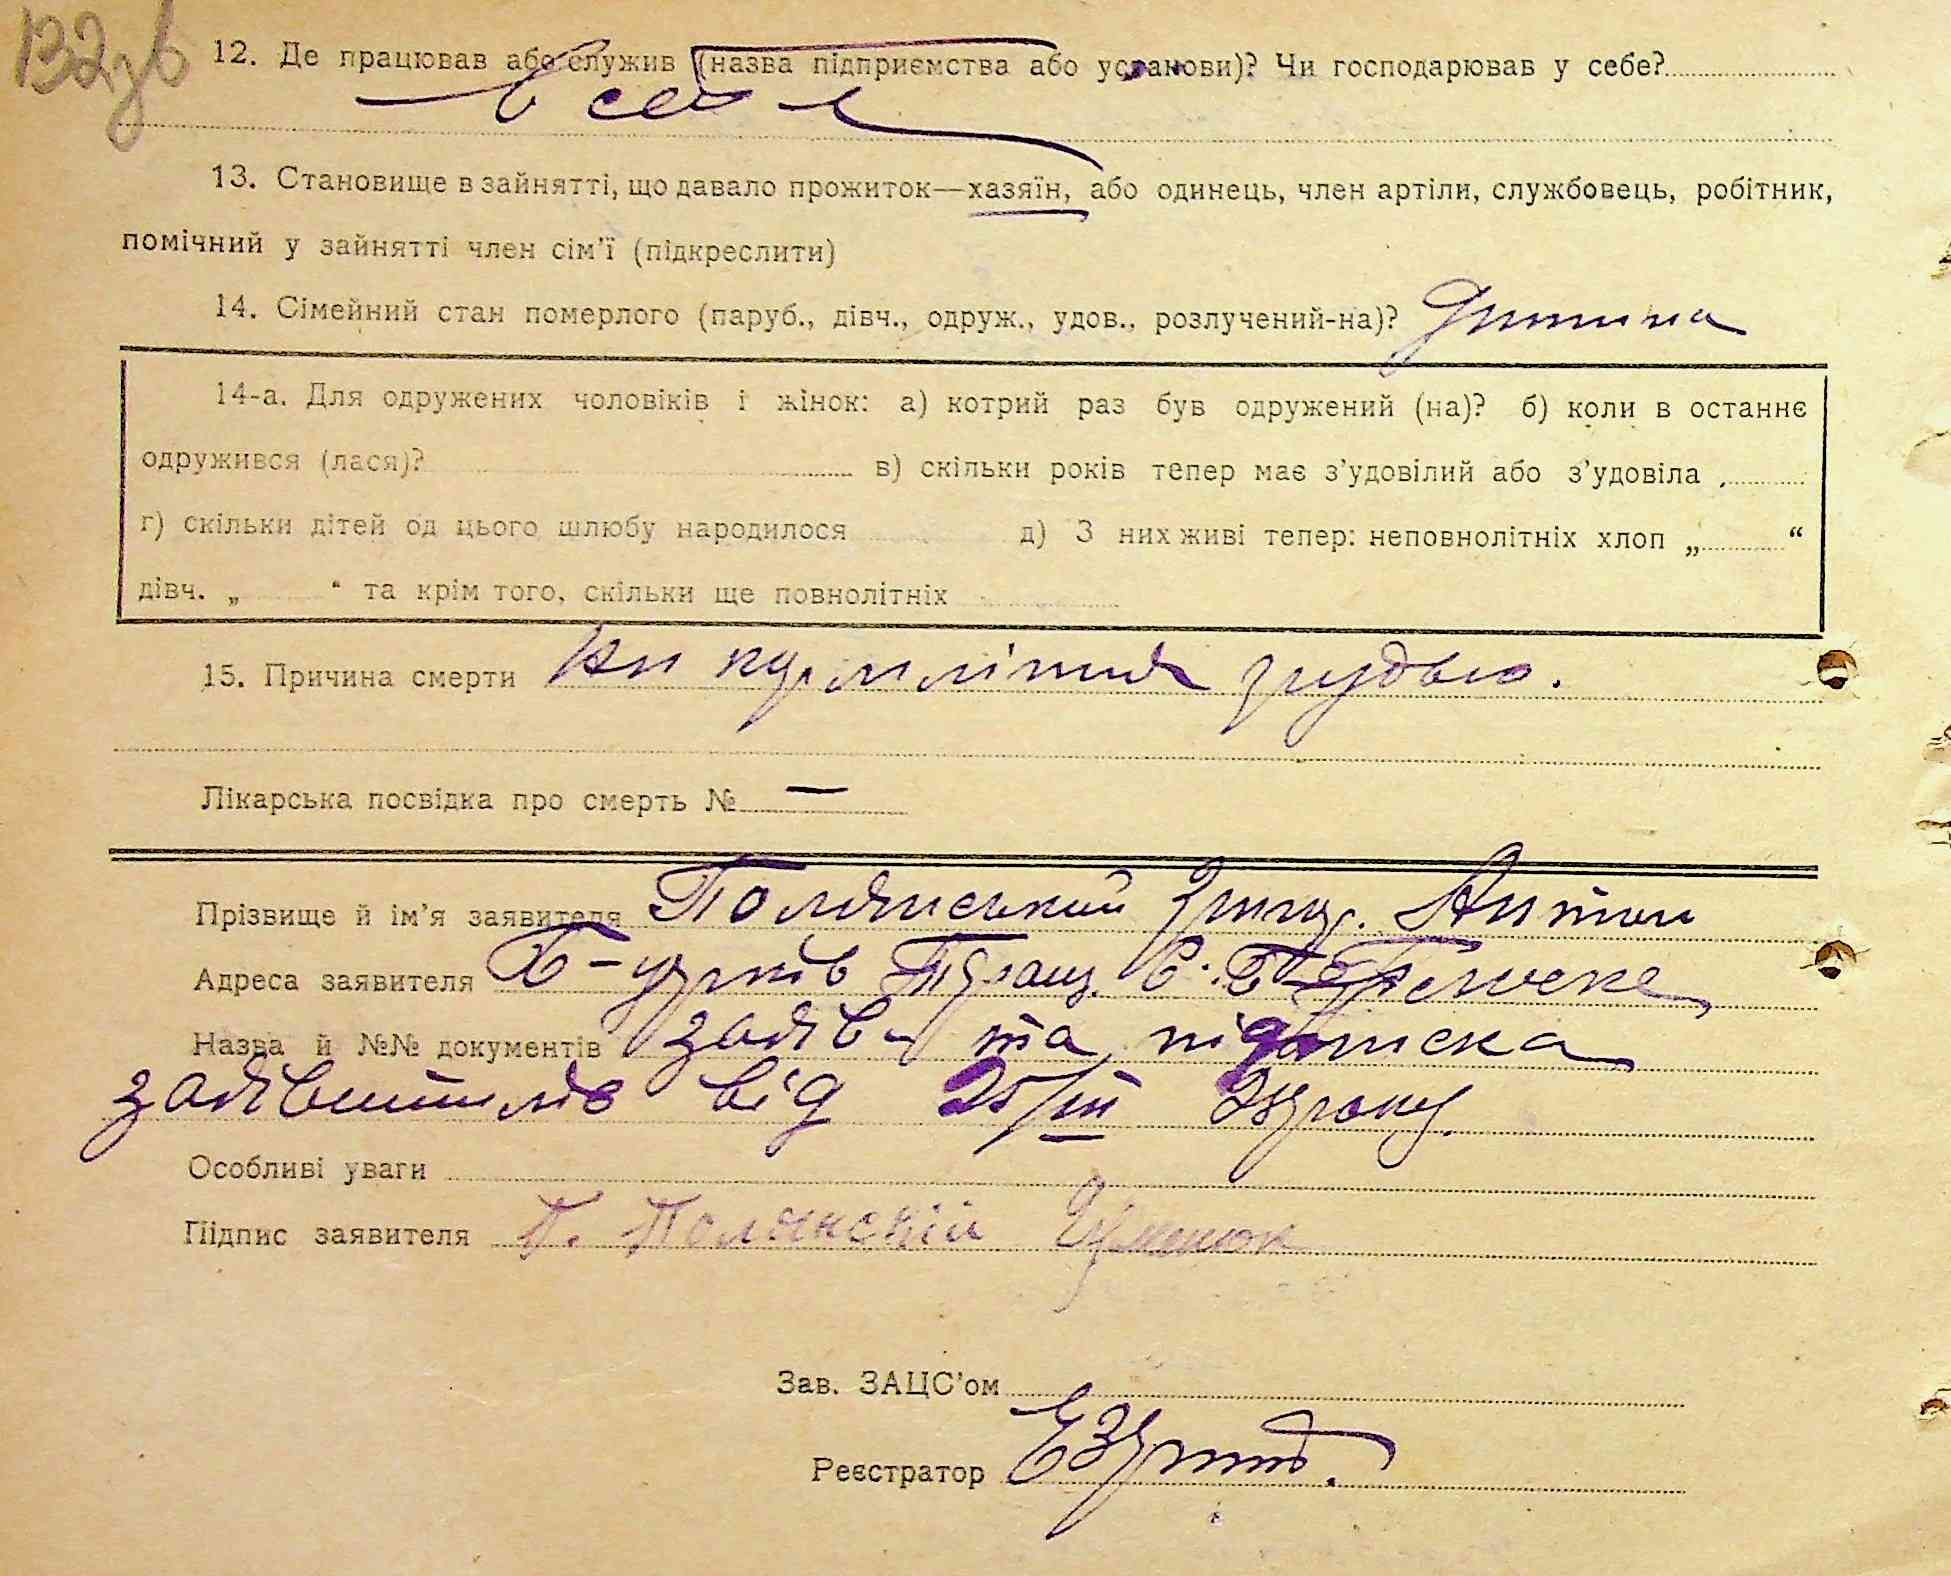 132зв
12. Де працював або служив (назва підприємства або установи)? Чи господарював у себе?
в себе
13. Становище в зайнятті, що давало прожиток—хазяїн, або одинець, член артіли, службовець, робітник,
помічний у зайнятті член сім’ї (підкреслити)
14. Сімейний стан померлого (паруб., дівч., одруж., удов., розлучений-на)? Дитина
14-а. Для одружених чоловіків і жінок: а) котрий раз був одружений (на)? б) коли в останнє
одружився (лася)? в) скільки років тепер має з’удовілий або з’удовіла
г) скільки дітей од цього шлюбу народилося д) З них живі тепер: неповнолітніх хлоп „ “
дівч. „ “ та крім того, скільки ще повнолітніх
15. Причина смерти грудью.
Лікарська посвідка про смерть № —
Прізвище й ім’я заявителя Полянський Антон
Адреса заявителя
Назва й №№ документів заява та підписка
заявителів від 25/III року
Особливі уваги
Підпис заявителя П. Полянскій
Зав. ЗАЦС’ом
Реєстратор